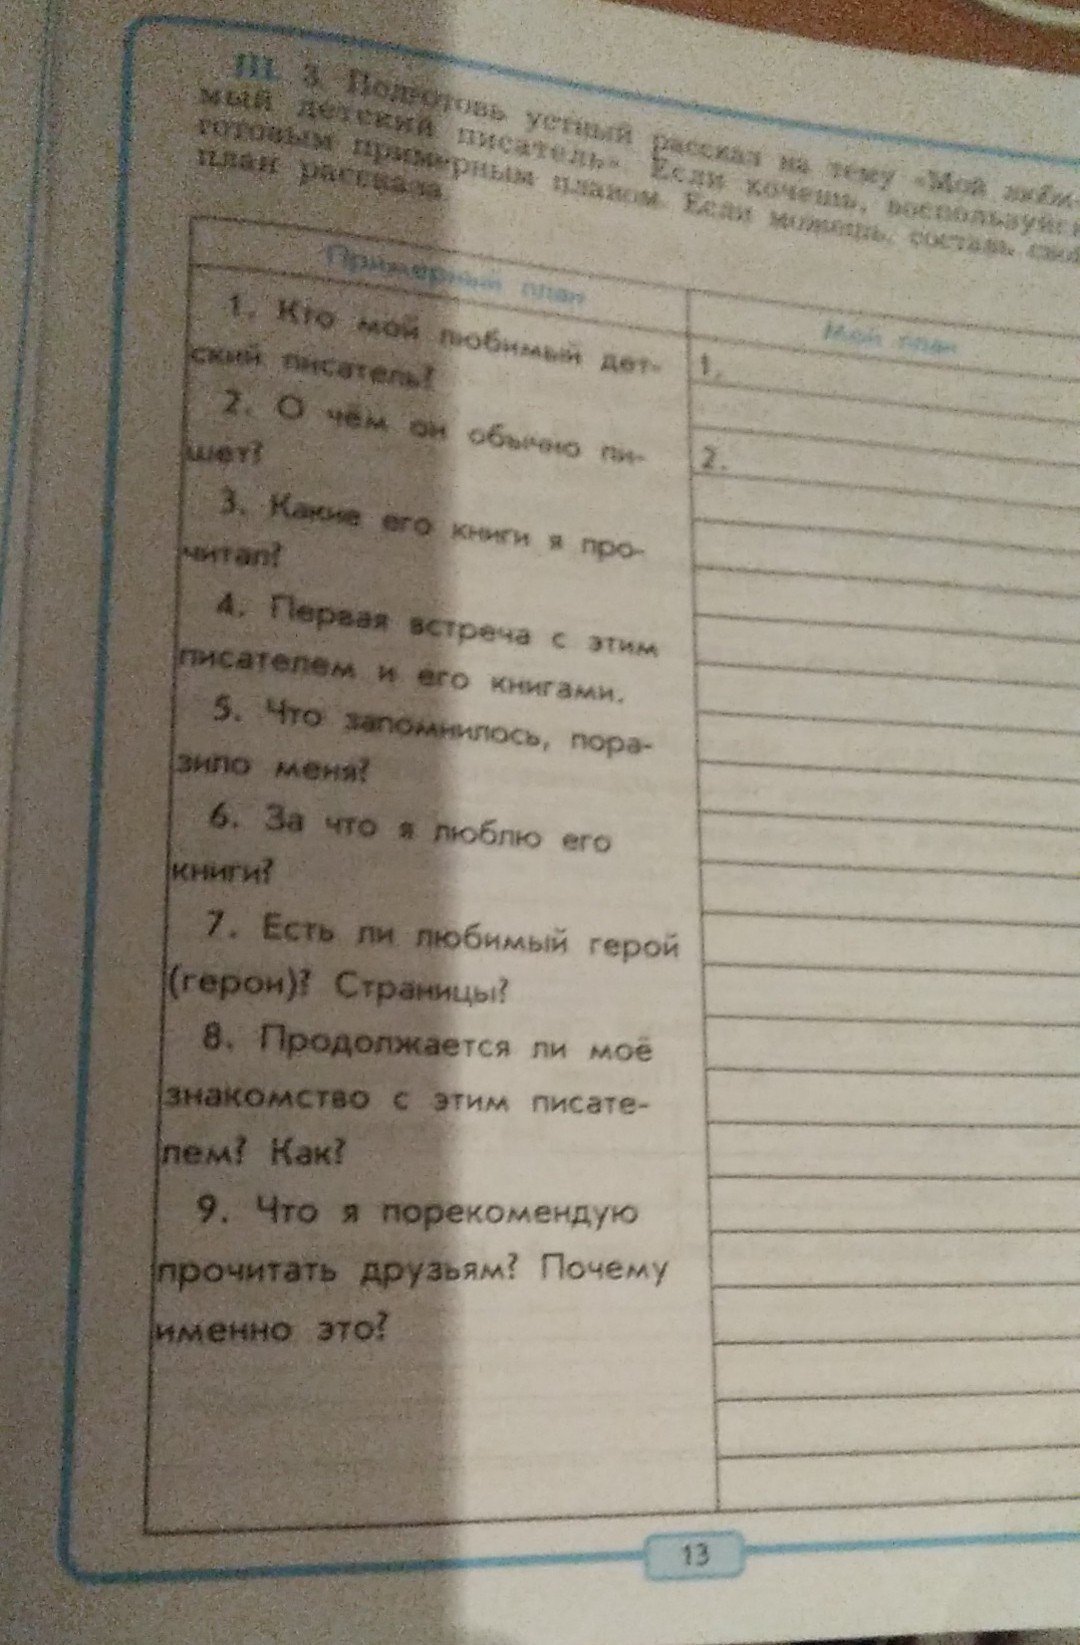 III. 3. Подготовь устный рассказ на тему «Мой люби-
мый детский писатель». Если хочешь, воспользуйся
готовым примерным планом. Если можешь, составь свой
план рассказа.
Примерный план
Мой план
1. Кто мой любимый дет-
ский писатель?
2. О чём он обычно пи-
шет?
3. Какие его книги я про-
читал?
4. Первая встреча с этим
писателем и его книгами.
5. Что запомнилось, пора-
зило меня?
6. За что я люблю его
книги?
7. Есть ли любимый герой
(герои)? Страницы?
8. Продолжается ли моё
знакомство с этим писате-
лем? Как?
9. Что я порекомендую
прочитать друзьям? Почему
именно это?
1.
2.
13